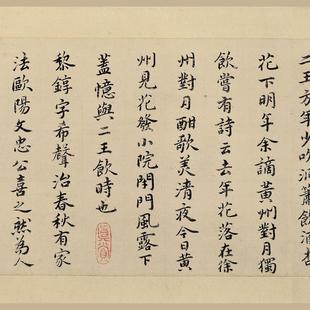 二王方年少吹洞簫飲酒杏
花下明年余謫黃州對月獨
飲嘗有詩云去年花落在徐
州對月酣歌美清夜今日黃
州見花發小院閉門風露下
蓋憶與二王飲時也
黎錞字希聲治春秋有家
法歐陽文忠公喜之然為人